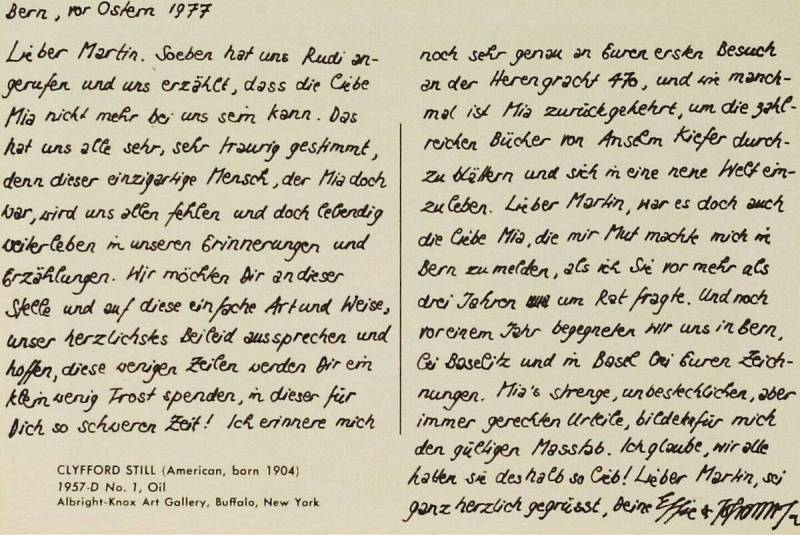 Bern, vor Ostern 1977
Lieber Martin. Soeben hat uns Rudi an-
gerufen und uns erzählt, dass die Liebe
Mia nicht mehr bei uns sein kann. Das
hat uns alle sehr, sehr traurig gestimmt,
denn dieser einzigartige Mensch, der Mia doch
war, wird uns allen fehlen und doch lebendig
weiterleben in unseren Erinnerungen und
Erzählungen. Wir möchten Dir an dieser
Stelle und auf diese einfache Art und Weise,
unser herzlichstes Beileid aussprechen und
hoffen, diese wenigen Zeilen werden Dir ein
klein wenig Trost spenden, in dieser für
Dich so schweren Zeit! Ich erinnere mich
CLYFFORD STILL (American, born 1904)
1957-D No. 1, Oil
Albright-Knox Art Gallery, Buffalo, New York
noch sehr genau an Euren ersten Besuch
an der Herengracht 470, und wie manch-
mal ist Mia zurückgekehrt, um die zahl-
reichen Bücher von Anselm Kiefer durch-
zu blättern und sich in eine neue Welt ein-
zuleben. Lieber Martin, war es doch auch
die liebe Mia, die mir Mut machte mich in
Bern zu melden, als ich Sie vor mehr als
drei Jahren um Rat fragte. Und noch
vor einem Jahr begegneten wir uns in Bern,
bei Baselitz und in Basel bei Euren Zeich-
nungen. Mia's strenge, unbestechlichen, aber
immer gerechten Urteile, bildete für mich
den gültigen Massstab. Ich glaube, wir alle
hatten sie deshalb so lieb! Lieber Martin, sei
ganz herzlich gegrüsst, Deine Effie &